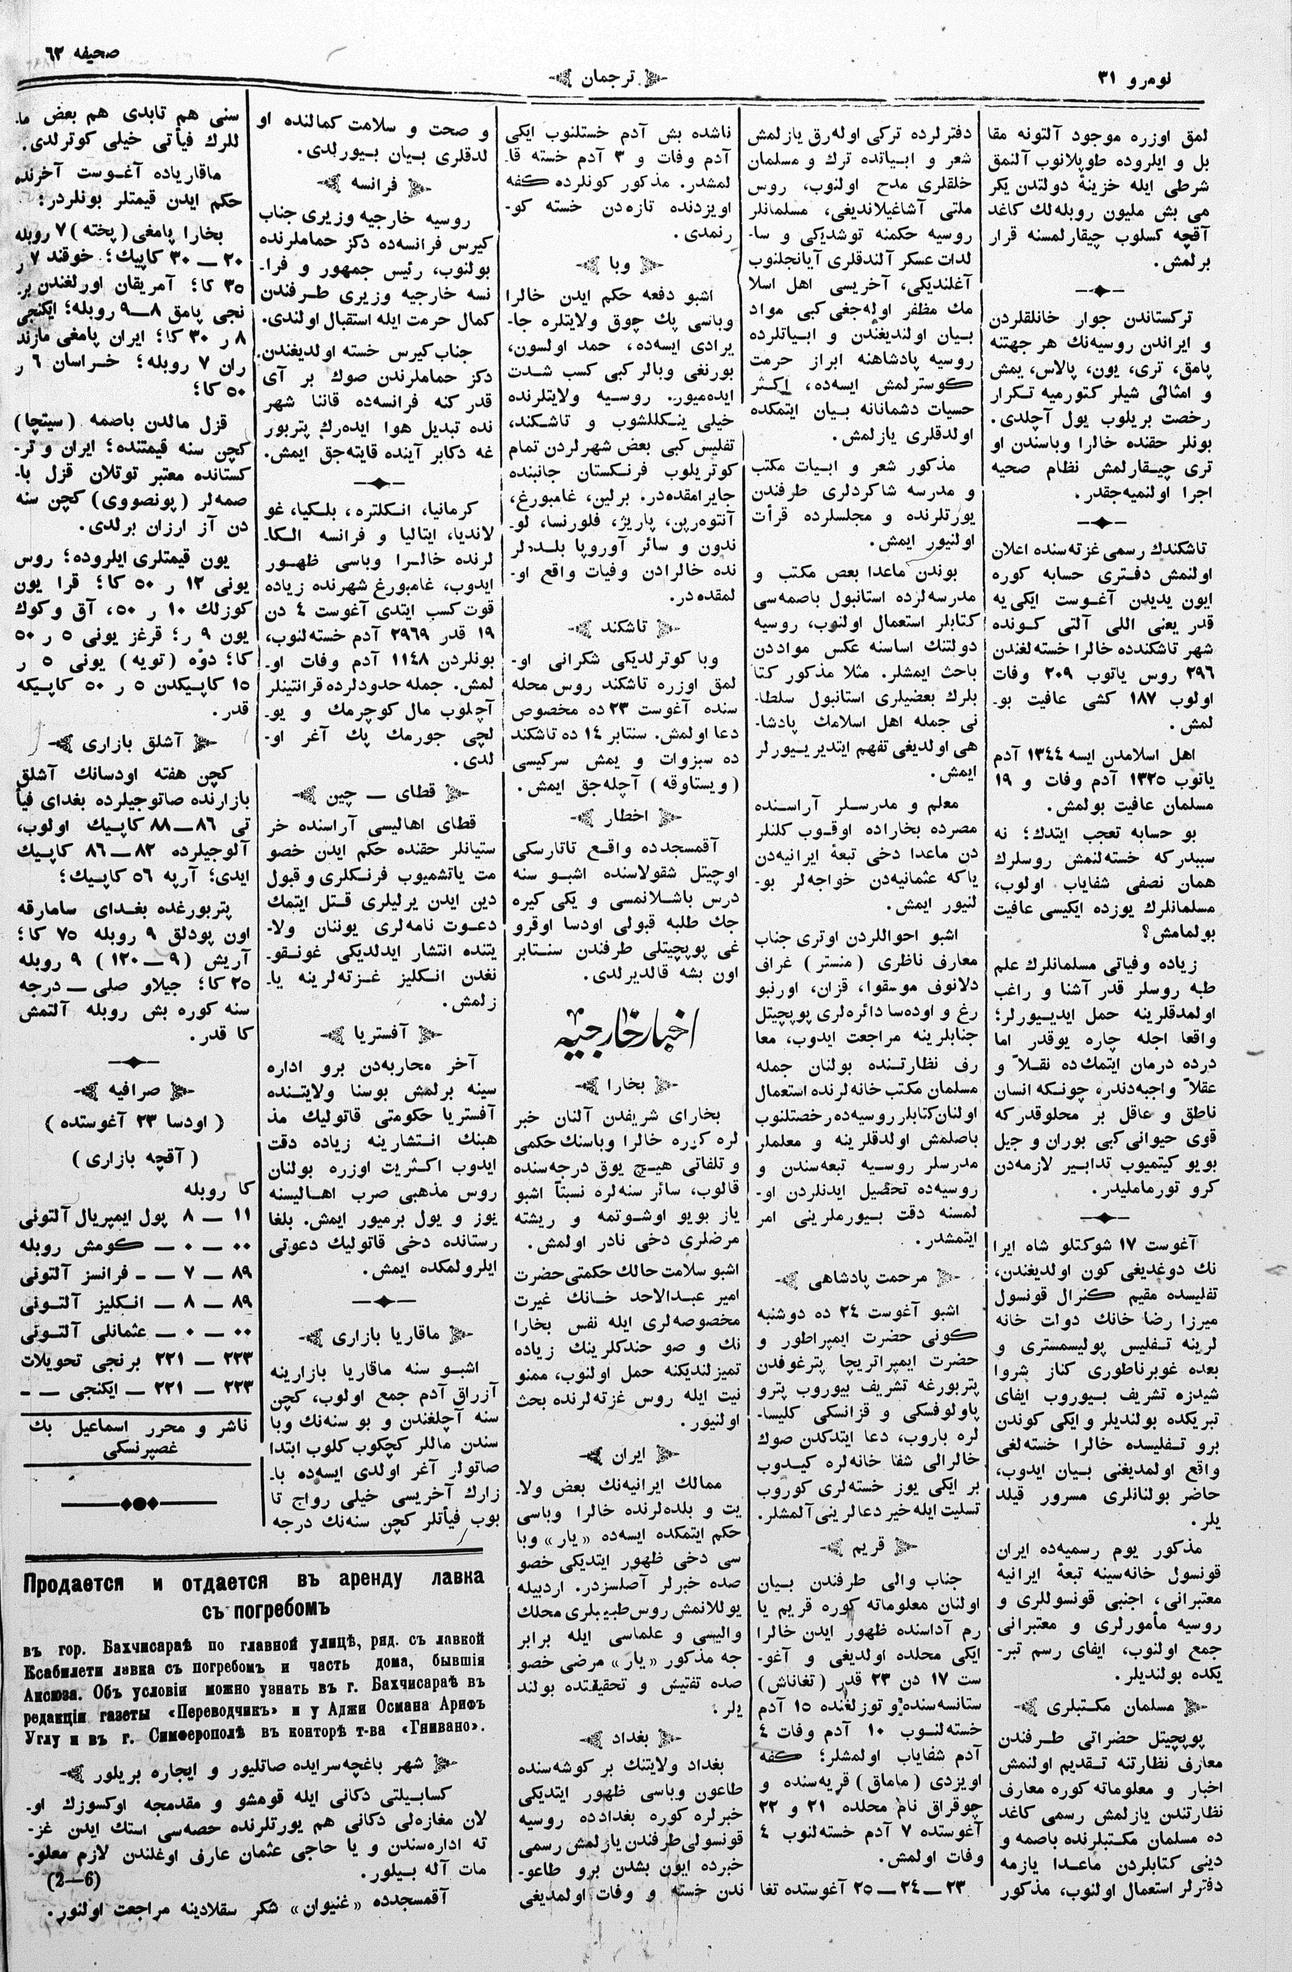 نومرو ٣١
ترجمان
صحیفه ٦٢
لمق اوزره موجود آلتونه مقا
بل و ایلروده طوپلانوب آلنمق
شرطی ایله خزینهٔ دولتدن یکر
می بش ملیون روبله‌لك كاغد
آقچه كسلوب چیقارلمسنه قرار
برلمش.
تركستاندن جوار خانلقلردن
و ایراندن روسیه‌نك هر جهتنه
پامق، تری، یون، پالاس، یمش
و امثالی شیلر كتورمیه تكرار
رخصت بریلوب یول آچلدی.
بونلر حقنده خالرا وباسندن او
تری چیقارلمش نظام صحیه
اجرا اولنمیه‌جقدر.
تاشكندك رسمی غزته‌سنده اعلان
اولنمش دفتری حسابه كوره
ایون یدیدن آغوست ایكی‌یه
قدر یعنی اللی آلتی كونده
شهر تاشكندده خالرا خسته‌لغندن
٢٩٦ روس یاتوب ٢٠٩ وفات
اولوب ١٨٧ كشی عافیت بو-
لمش.
اهل اسلامدن ایسه ١٣٤٤ آدم
یاتوب ١٣٢٥ آدم وفات و ١٩
مسلمان عافیت بولمش.
بو حسابه تعجب ایتدك؛ نه
سببدركه خسته‌لنمش روسلرك
همان نصفی شفایاب اولوب،
مسلمانلرك یوزده ایكیسی عافیت
بولمامش؟
زیاده وفیاتی مسلمانلرك علم
طبه روسلر قدر آشنا و راغب
اولمدقلرینه حمل ایدیورلر؛
واقعا اجله چاره یوقدر اما
درده درمان ایتمك‌ده نقلاً و
عقلاً واجبه‌دندر، چونكه انسان
ناطق و عاقل بر مخلوقدركه
قوی حیوانی كبی بوران و جیل
بویو كیتمیوب تدابیر لازمه‌دن
كرو تورماملیدر.
آغوست ١٧ شوكتلو شاه ایرا
نك دوغدیغی كون اولدیغندن،
تفلیسده مقیم كنرال قونسول
میرزا رضا خانك دولت خانه
لرینه تفلیس پولیسمستری و
بعده غوبرناطوری كناز شروا
شیدزه تشریف بیوروب ایفای
تبریكده بولندیلر و ایكی كوندن
برو تفلیسده خالرا خسته‌لغی
واقع اولمدیغنی بیان ایدوب،
حاضر بولنانلری مسرور قیلد
یلر.
مذكور یوم رسمیه‌ده ایران
قونسول خانه‌سینه تبعهٔ ایرانیه
معتبرانی، اجنبی قونسوللری و
روسیه مأمورلری و معتبرانی
جمع اولنوب، ایفای رسم تبر-
یكده بولندیلر.
مسلمان مكتبلری
پوپچیتل حضراتی طرفندن
معارف نظارتنه تقدیم اولنمش
اخبار و معلوماته كوره معارف
نظارتندن یازلمش رسمی كاغد
ده مسلمان مكتبلرنده باصمه و
دینی كتابلردن ماعدا یازمه
دفترلر استعمال اولنوب، مذكور
دفترلرده تركی اوله‌رق یازلمش
شعر و ابیاتده ترك و مسلمان
خلقلری مدح اولنوب، روس
ملتی آشاغیلاندیغی، مسلمانلر
روسیه حكمنه توشدیكی و سا-
لدات عسكر آلندقلری آیانجلنوب
آغلندیكی، آخریسی اهل اسلا
مك مظفر اوله‌جغی كبی مواد
بیان اولندیغندن و ابیاتلرده
روسیه پادشاهنه ابراز حرمت
كوسترلمش ایسه‌ده، اكثر
حسیات دشمنانه بیان ایتمكده
اولدقلری یازلمش.
مذكور شعر و ابیات مكتب
و مدرسه شاكردلری طرفندن
یورتلرنده و مجلسلرده قرأت
اولنیور ایمش.
بوندن ماعدا بعض مكتب و
مدرسه‌لرده استانبول باصمه‌سی
كتابلر استعمال اولنوب، روسیه
دولتنك اساسنه عكس مواددن
باحث ایمشلر. مثلا مذكور كتا
بلرك بعضیلری استانبول سلطا-
نی جمله اهل اسلامك پادشا-
هی اولدیغی تفهم ایتدیریورلر
ایمش.
معلم و مدرسلر آراسنده
مصرده بخاراده اوقوب كلنلر
دن ماعدا دخی تبعهٔ ایرانیه‌دن
یاكه عثمانیه‌دن خواجه‌لر بو-
لنیور ایمش.
اشبو احواللردن اوتری جناب
معارف ناظری (منستر) غراف
دلانوف موسقوا، قزان، اورنبو
رغ و اوده‌سا دائره‌لری پوپچیتل
جنابلرینه مراجعت ایدوب، معا
رف نظارتنده بولنان جمله
مسلمان مكتب خانه‌لرنده استعمال
اولنان كتابلر روسیه‌ده رخصتلنوب
باصلمش اولدقلرینه و معلملر
مدرسلر روسیه تبعه‌سندن و
روسیه‌ده تحصیل ایدنلردن او-
لمسنه دقت بیورملرینی امر
ایتمشدر.
مرحمت پادشاهی
اشبو آغوست ٢٤ ده دوشنبه
كونی حضرت ایمپراطور و
حضرت ایمپراتریچا پترغوفدن
پتربورغه تشریف بیوروب پترو
پاولوفسكی و قزانسكی كلیسا-
لره باروب، دعا ایتدكدن صوك
خالرالی شفا خانه‌لره كیدوب
بر ایكی یوز خسته‌لری كوروب
تسلیت ایله خیر دعالرینی آلمشلر.
قریم
جناب والی طرفندن بیان
اولنان معلوماته كوره قریم یا
رم آداسنده ظهور ایدن خالرا
ایكی محلده اولدیغی و آغو-
ست ١٧ دن ٢٣ قدر (تغاناش)
ستانسه‌سنده و توزلغنده ١٥ آدم
خسته‌لنوب ١٠ آدم وفات ٤
آدم شفایاب اولمشلر؛ كفه
اویزدی (ماماق) قریه‌سنده و
چوقراق نام محلده ٢١ و ٢٢
آغوستده ٧ آدم خسته‌لنوب ٤
وفات اولمش.
٢٣ — ٢٤ — ٢٥ آغوستده تغا
ناشده بش آدم خستلنوب ایكی
آدم وفات و ٣ آدم خسته قا-
لمشدر. مذكور كونلرده كفه
اویزدنده تازه‌دن خسته كو-
رنمدی.
وبا
اشبو دفعه حكم ایدن خالرا
وباسی پك چوق ولایتلره جا-
یرادی ایسه‌ده، حمد اولسون،
بورنغی وبالر كبی كسب شدت
ایده‌میور. روسیه ولایتلرنده
خیلی ینكللشوب و تاشكند،
تفلیس كبی بعض شهرلردن تمام
كوتریلوب فرنكستان جانبنده
جایرامقده‌در. برلین، غامبورغ،
آنتوه‌رپن، پاریژ، فلورنسا، لو-
ندون و سائر آوروپا بلده‌لر
نده خالرادن وفیات واقع او-
لمقده‌در.
تاشكند
وبا كوترلدیكی شكرانی او-
لمق اوزره تاشكند روس محله
سنده آغوست ٢٣ ده مخصوص
دعا اولمش. سنتابر ١٤ ده تاشكند
ده سبزوات و یمش سركیسی
(ویستاوقه) آچله‌جق ایمش.
اخطار
آقمسجدده واقع تاتارسكی
اوچیتل شقولاسنده اشبو سنه
درس باشلانمسی و یكی كیره
جك طلبه قبولی اودسا اوقرو
غی پوپچیتلی طرفندن سنتابر
اون بشه قالدیرلدی.
اخبار خارجیه
بخارا
بخارای شریفدن آلنان خبر
لره كوره خالرا وباسنك حكمی
و تلفاتی هیچ یوق درجه‌سنده
قالوب، سائر سنه‌لره نسبتاً اشبو
یاز بویو اوشوتمه و ریشته
مرضلری دخی نادر اولمش.
اشبو سلامت حالك حكمتی حضرت
امیر عبدالاحد خانك غیرت
مخصوصه‌لری ایله نفس بخارا
نك و صو خندكلرینك زیاده
تمیزلندیكنه حمل اولنوب، ممنو
نیت ایله روس غزته‌لرنده بحث
اولنیور.
ایران
ممالك ایرانیه‌نك بعض ولا-
یت و بلده‌لرنده خالرا وباسی
حكم ایتمكده ایسه‌ده «یار» وبا
سی دخی ظهور ایتدیكی خصو
صده خبرلر آصلسزدر. اردبیله
یوللانمش روس طبیبلری محلك
والیسی و علماسی ایله برابر
جه مذكور «یار» مرضی خصو
صده تفتیش و تحقیقتده بولند
یلر.
بغداد
بغداد ولایتنك بر كوشه‌سنده
طاعون وباسی ظهور ایتدیكی
خبرلره كوره بغدادده روسیه
قونسولی طرفندن یازلمش رسمی
خبرده ایون بشدن برو طاعو-
ندن خسته و وفات اولمدیغی
و صحت و سلامت كمالنده او
لدقلری بیان بیورلدی.
فرانسه
روسیه خارجیه وزیری جناب
كیرس فرانسه‌ده دكز حماملرنده
بولنوب، رئیس جمهور و فرا-
نسه خارجیه وزیری طرفندن
كمال حرمت ایله استقبال اولندی.
جناب كیرس خسته اولدیغندن،
دكز حماملرندن صوك بر آی
قدر كنه فرانسه‌ده قاننا شهر
نده تبدیل هوا ایده‌رك پتربور
غه دكابر آینده قایته‌جق ایمش.
كرمانیا، انكلتره، بلكیا، غو
لاندیا، ایتالیا و فرانسه الكا-
لرنده خالرا وباسی ظهور
ایدوب، غامبورغ شهرنده زیاده
قوت كسب ایتدی آغوست ٤ دن
١٩ قدر ٢٩٦٩ آدم خسته‌لنوب،
بونلردن ١١٤٨ آدم وفات او-
لمش. جمله حدودلرده قرانتینلر
آچلوب مال كوچرمك و یو-
لچی جورمك پك آغر او-
لدی.
قطای — چین
قطای اهالیسی آراسنده خر
ستیانلر حقنده حكم ایدن خصو
مت یاتشمیوب فرنكلری و قبول
دین ایدن یرلیلری قتل ایتمك
دعوت نامه‌لری یوننان ولا-
یتنده انتشار ایدلدیكی غونقو-
نغدن انكلیز غزته‌لرینه یا-
زلمش.
آفستریا
آخر محاربه‌دن برو اداره
سینه برلمش بوسنا ولایتنده
آفستریا حكومتی قاتولیك مذ
هبنك انتشارینه زیاده دقت
ایدوب اكثریت اوزره بولنان
روس مذهبی صرب اهالیسنه
یوز و یول برمیور ایمش. بلغا
رستانده دخی قاتولیك دعوتی
ایلرولمكده ایمش.
ماقاریا بازاری
اشبو سنه ماقاریا بازارینه
آزراق آدم جمع اولوب، كچن
سنه آچلغندن و بو سنه‌نك وبا
سندن ماللر كچكوب كلوب ابتدا
صاتولر آغر اولدی ایسه‌ده با-
زارك آخریسی خیلی رواج تا
بوب فیأتلر كچن سنه‌نك درجه
سنی هم تابدی هم بعض ما-
للرك فیأتی خیلی كوترلدی.
ماقاریاده آغوست آخرنده
حكم ایدن قیمتلر بونلردر:
بخارا پامغی (پخته) ٧ روبله
٢٠ — ٣٠ كاپیك؛ خوقند ٧ ر
٣٥ كا؛ آمریقان اورلغندن بر-
نجی پامق ٨—٩ روبله؛ ایكنجی
٨ ر ٣٠ كا؛ ایران پامغی مازند
ران ٧ روبله؛ خراسان ٦ ر
٥٠ كا؛
قزل مالدن باصمه (سیتچا)
كچن سنه قیمتنده؛ ایران و تر-
كستانده معتبر توتلان قزل با-
صمه‌لر (پونصووی) كچن سنه
دن آز ارزان برلدی.
یون قیمتلری ایلروده؛ روس
یونی ١٢ ر ٥٠ كا؛ قرا یون
كوزلك ١٠ ر ٥٠، آق و كوك
یون ٩ ر؛ قرغز یونی ٥ ر ٥٠
كا؛ دوه (تویه) یونی ٥ ر
١٥ كاپیكدن ٥ ر ٥٠ كاپیكه
قدر.
آشلق بازاری
كچن هفته اودسانك آشلق
بازارنده صاتوجیلرده بغدای فیأ
تی ٨٦—٨٨ كاپیك اولوب،
آلوجیلرده ٨٢—٨٦ كاپیك
ایدی؛ آرپه ٥٦ كاپیك؛
پتربورغده بغدای سامارقه
اون پودلق ٩ روبله ٧٥ كا؛
آریش (٩—١٢٠) ٩ روبله
٢٥ كا؛ جیلاو صلی — درجه
سنه كوره بش روبله آلتمش
كا قدر.
صرافیه
(اودسا ٢٣ آغوستده)
(آقچه بازاری)
كا روبله
١١ — ٨ پول ایمپریال آلتونی
٠٠ — ٠ — كومش روبله
٨٩ — ٧ — - فرانسز آلتونی
٨٩ — ٨ — انكلیز آلتونی
٠٠ — ٠ — عثمانلی آلتونی
٢٢٣ — ٢٢١ برنجی تحویلات
٢٢٣ — ٢٢١ — ایكنجی — -
ناشر و محرر اسماعیل بك
غصپرنسكی
Продается и отдается въ аренду лавка
съ погребомъ
въ гор. Бахчисараѣ по главной улицѣ, ряд. съ лавкой
Ксабилети лавка съ погребомъ и часть дома, бывшія
Аксюза. Объ условіи можно узнать въ г. Бахчисараѣ въ
редакціи газеты «Переводчикъ» и у Аджи Османа Арифъ
Углу и въ г. Симферополѣ въ конторѣ т-ва «Гнивано».
شهر باغچه‌سرایده صاتلیور و ایجاره بریلور
كسابیلتی دكانی ایله قومشو و مقدمجه اوكسوزك او-
لان مغازه‌لی دكانی هم یورتلرنده حصه‌سی استك ایدن غز-
ته اداره‌سندن و یا حاجی عثمان عارف اوغلندن لازم معلو-
مات آله بیلور.
(2—6)
آقمسجدده «غنیوان» شكر سقلادینه مراجعت اولنور.